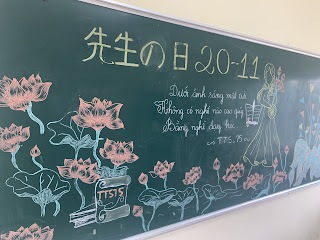 先生の日 20-11
Dưới ánh sáng mặt trời
Không có nghề nào cao quý
Bằng nghề dạy học
TTS15